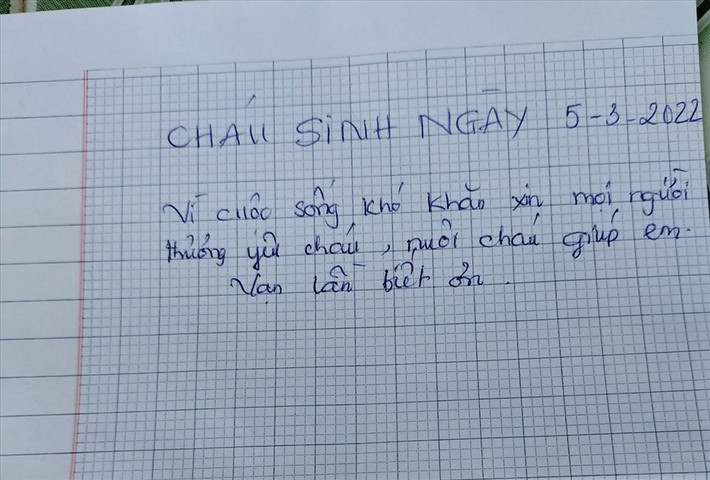 CHÁU SINH NGÀY 5-3-2022
Vì cuộc sống khó khăn xin mọi người
thương yêu cháu, nuôi cháu giúp em.
Vạn lần biết ơn.